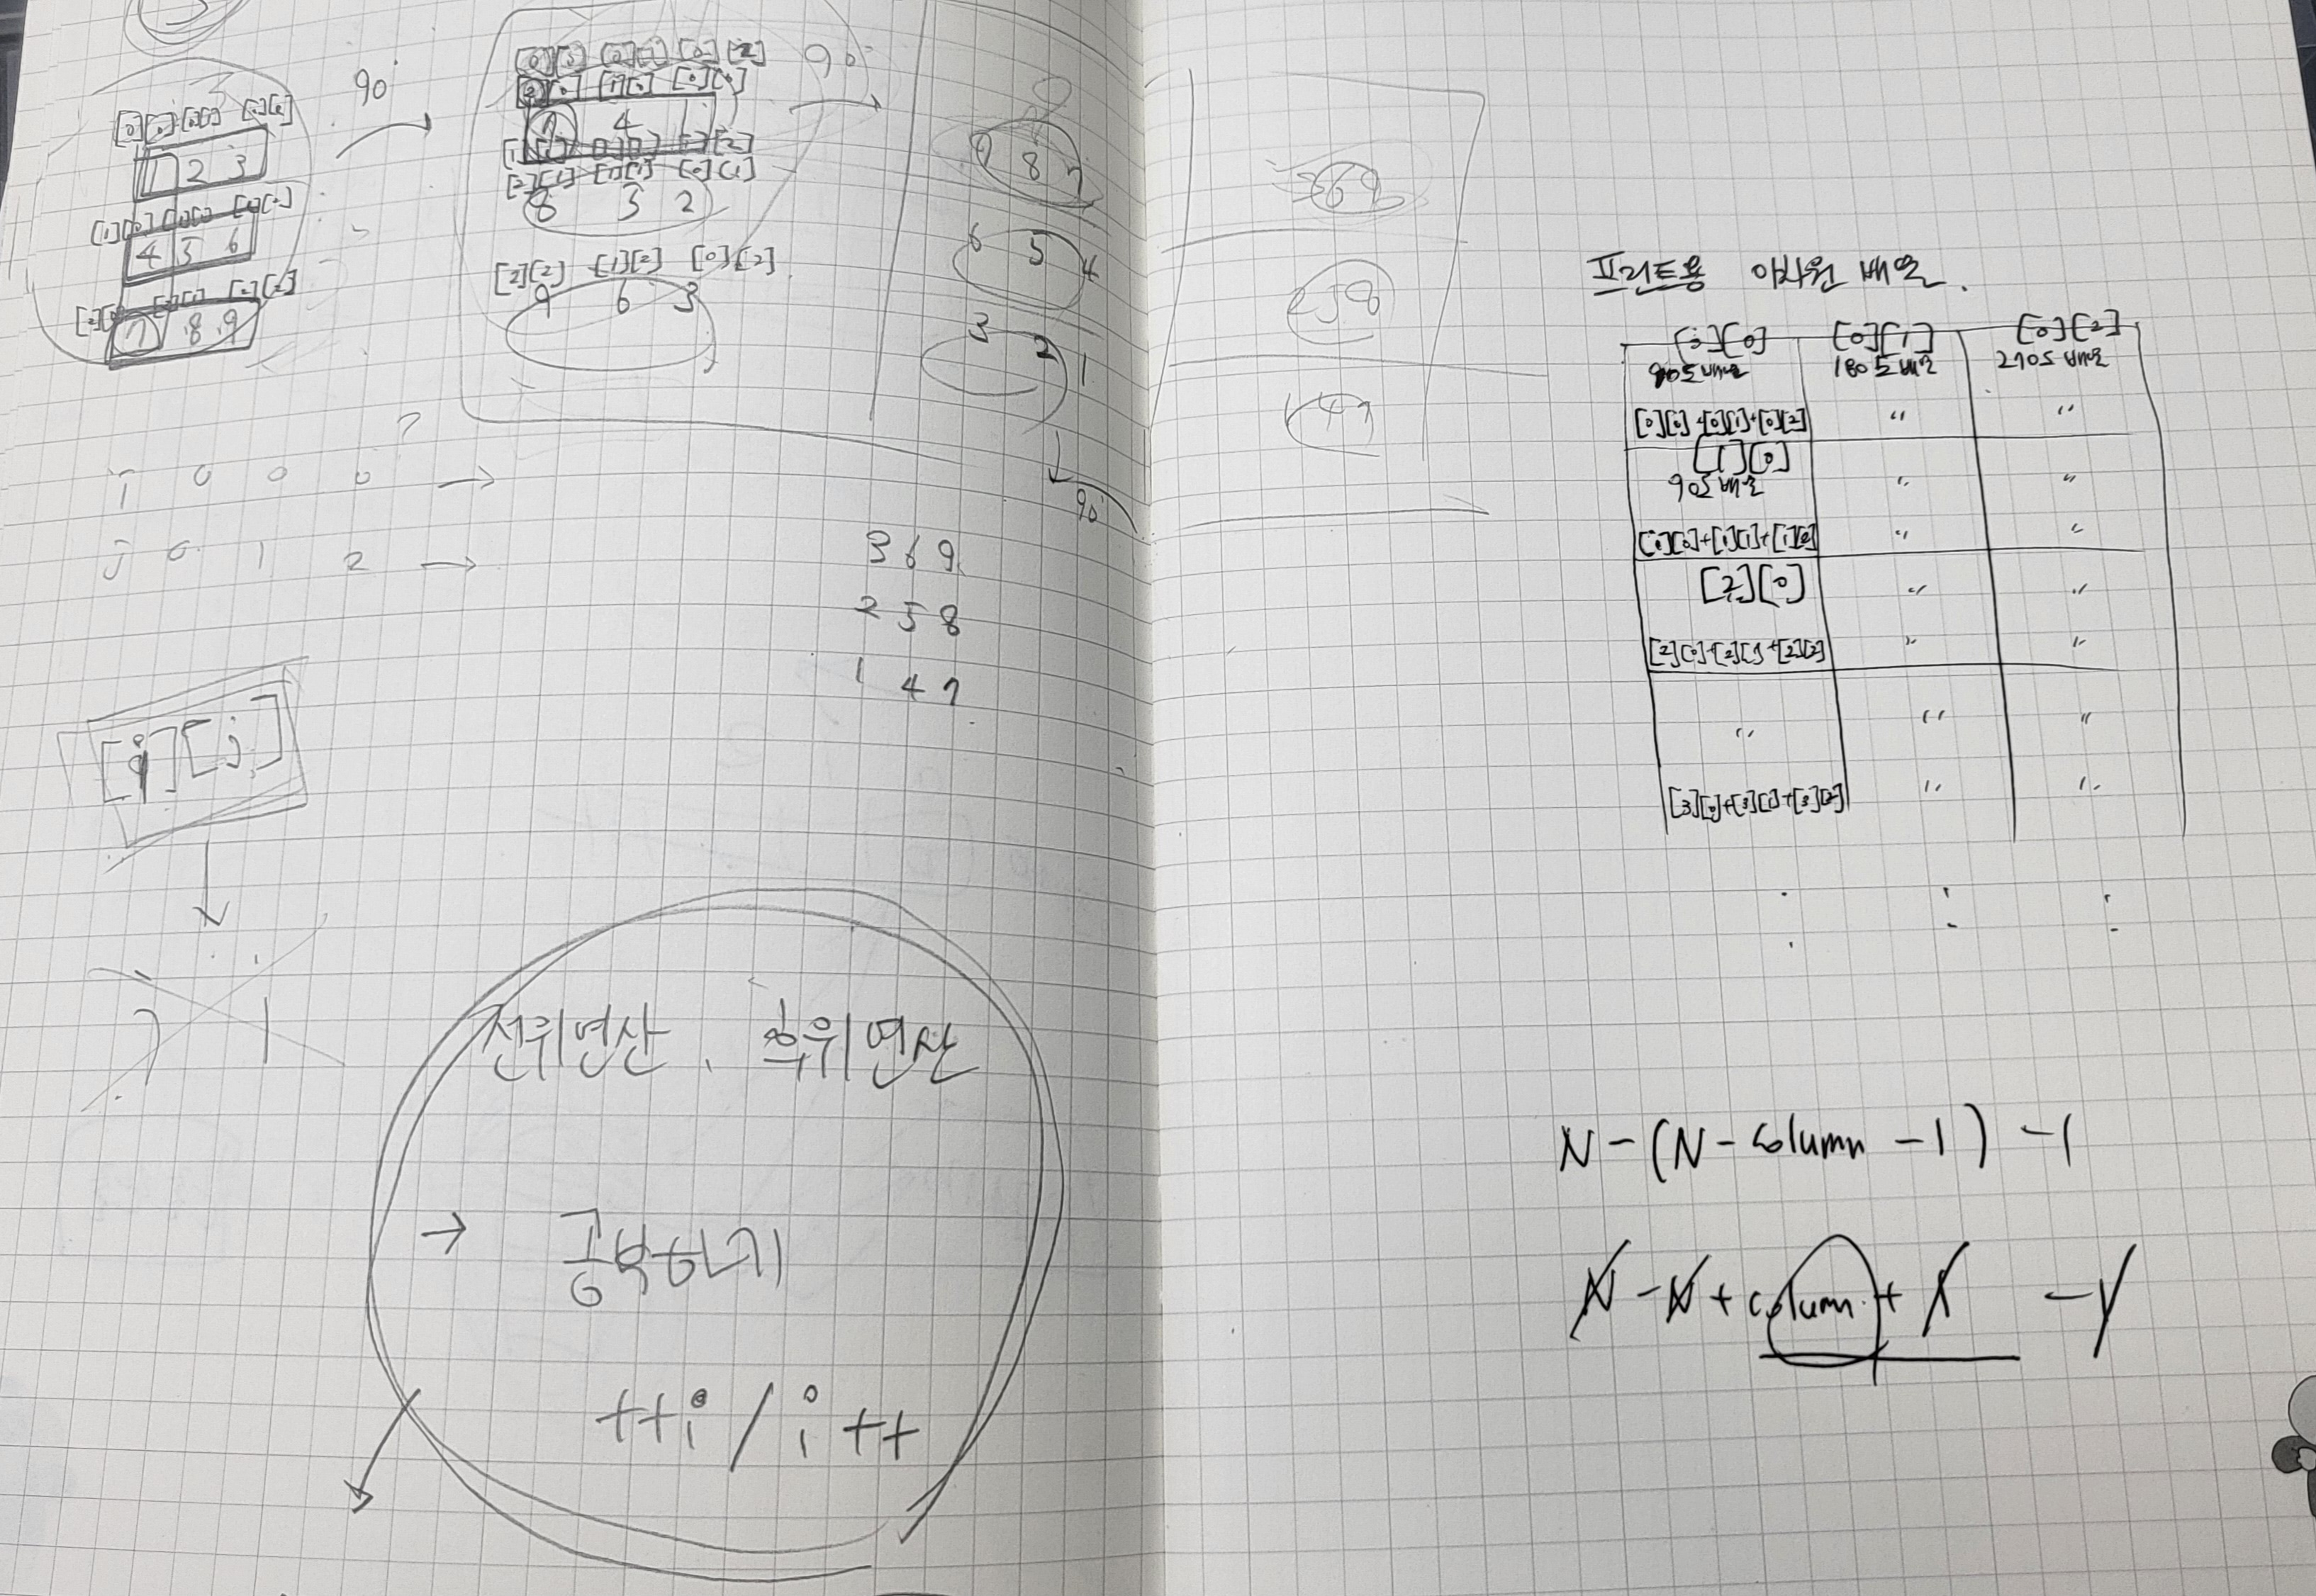 [0][0] [0][1] [0][2]
1 2 3
[1][0] [1][1] [1][2]
4 5 6
[2][0] [2][1] [2][2]
7 8 9
90°
[2][0] [1][0] [0][0]
7 4 1
[2][1] [1][1] [0][1]
8 3 2
[2][2] [1][2] [0][2]
9 6 3
90°
9 8 7
6 5 4
3 2 1
90°
i 0 0 0 →
j 0 1 2 →
3 6 9
2 5 8
1 4 7
[i][j]
전위연산, 후위연산
→ 공부하기
++i / i++
369
258
147
프린트용 이차원 배열.
[0][0] [0][1] [0][2]
90도배열 180도배열 270도배열
[0][0]+[0][1]+[0][2] " "
[1][0]
90도배열 " "
[1][0]+[1][1]+[1][2] " "
[2][0] " "
[2][0]+[2][1]+[2][2] " "
" " "
[3][0]+[3][1]+[3][2] " "
N-(N-column-1)-1
N-N+column+1-1